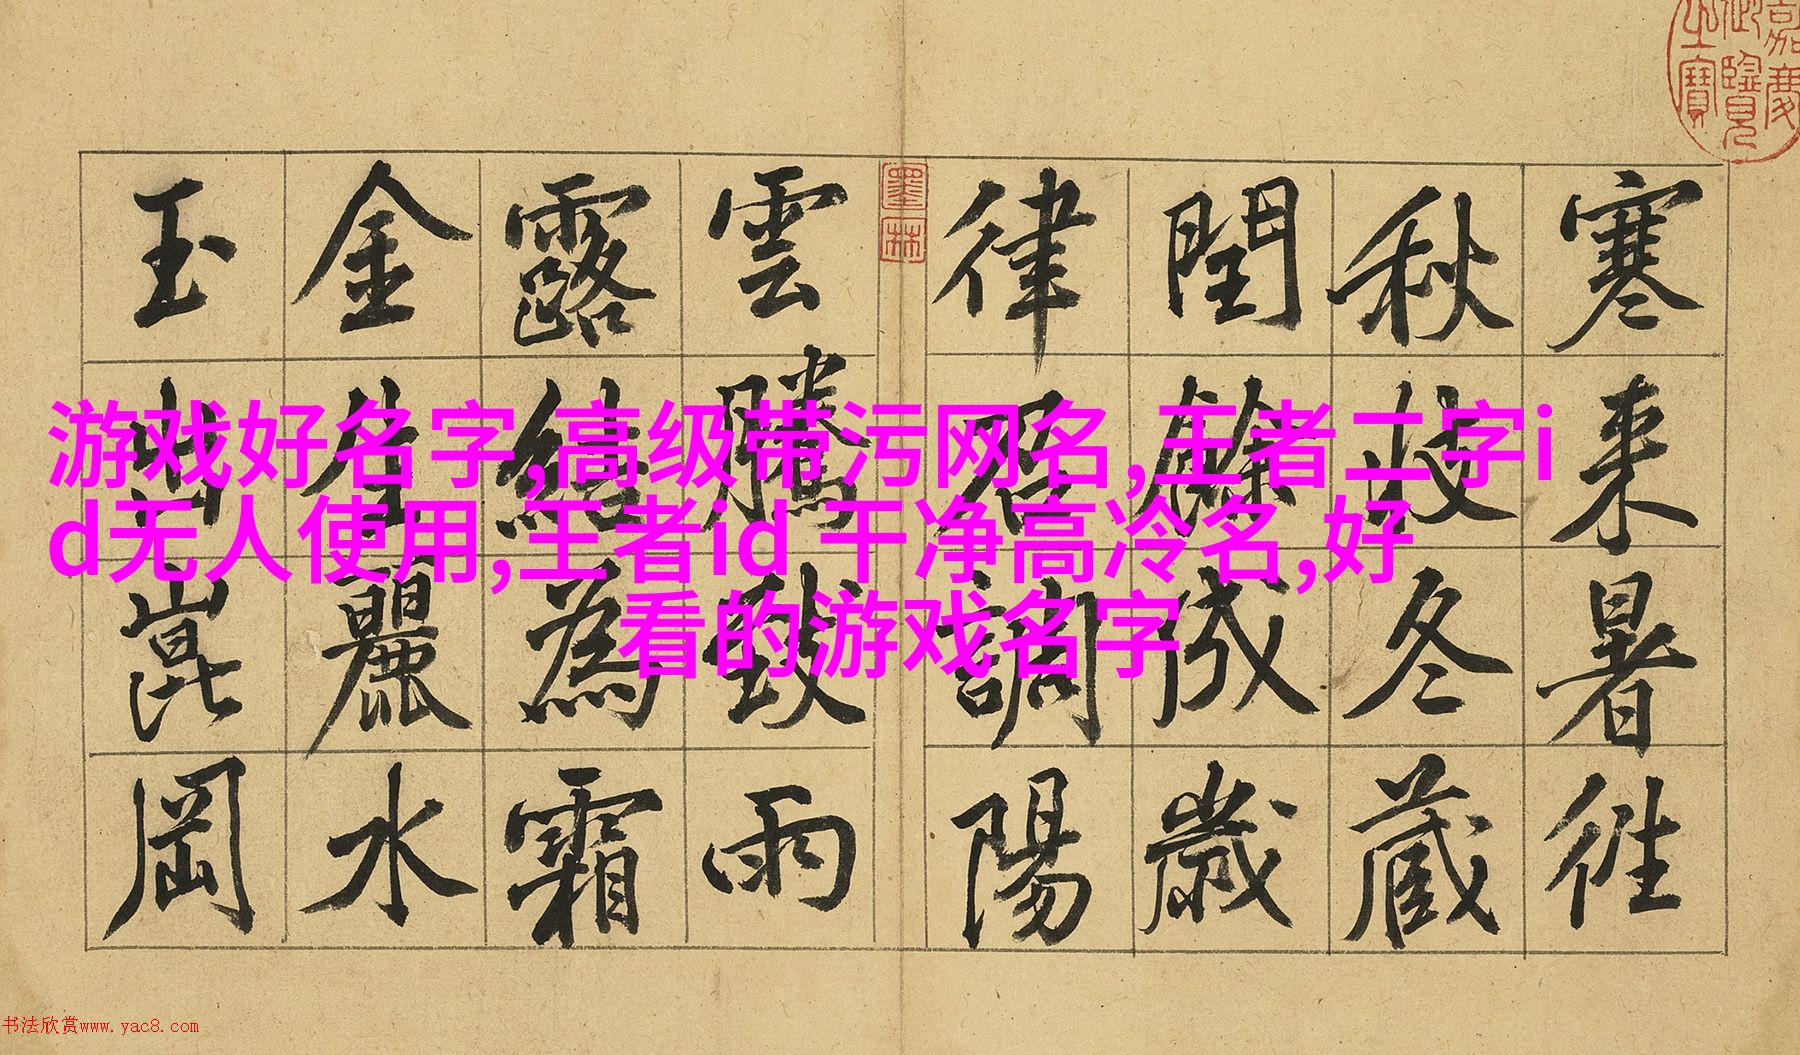 寒来暑徃
秋收冬藏
閏餘成歲
律召調陽
雲騰致雨
露結為霜
金生麗水
玉出崑岡
嘉慶
御覽
之寶
墨林
游戏好名字,高级带污网名,王者二字i
d无人使用,王者id 干净高冷名,好
看的游戏名字
书法欣赏www.yac8.com